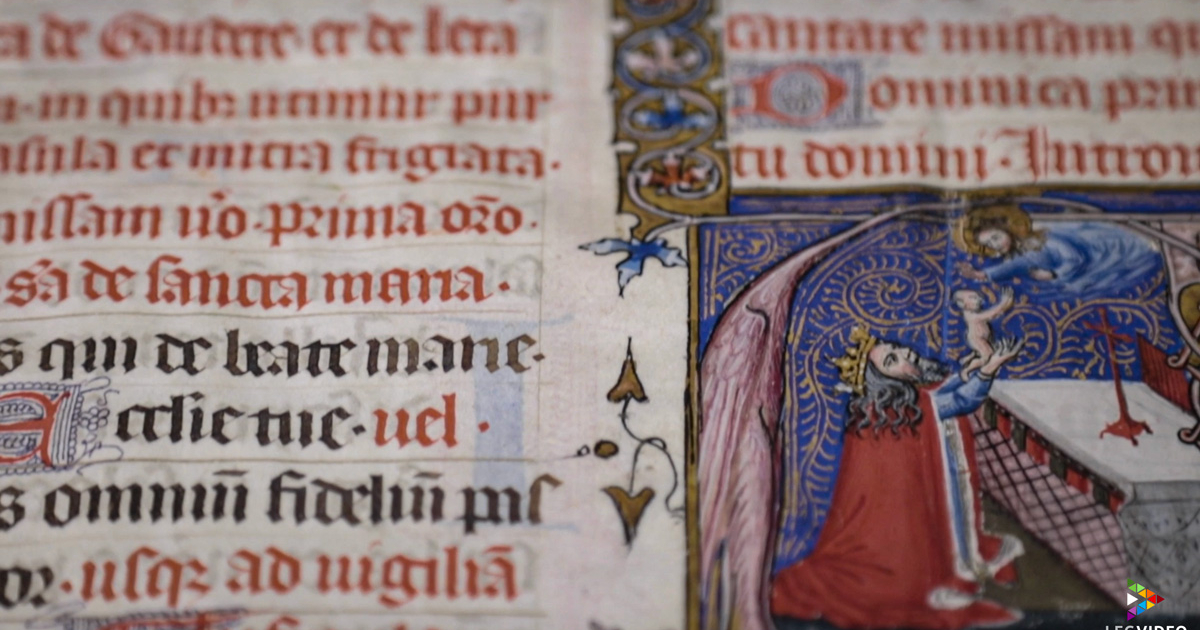 a de Gaudete et de leta
in quibꝫ utimur plur
nsula et mitra frigiata.
missam u̅o. prima or̅o.
s̅a de sancta maria.
s qui de beate marie.
cclie tue. uel.
s omniu̅ fideliu̅ pis
or. usqꝫ ad uigilia̅
cantare missam qu
Dominica prim
tu domini. Introi
LEGVIDEO